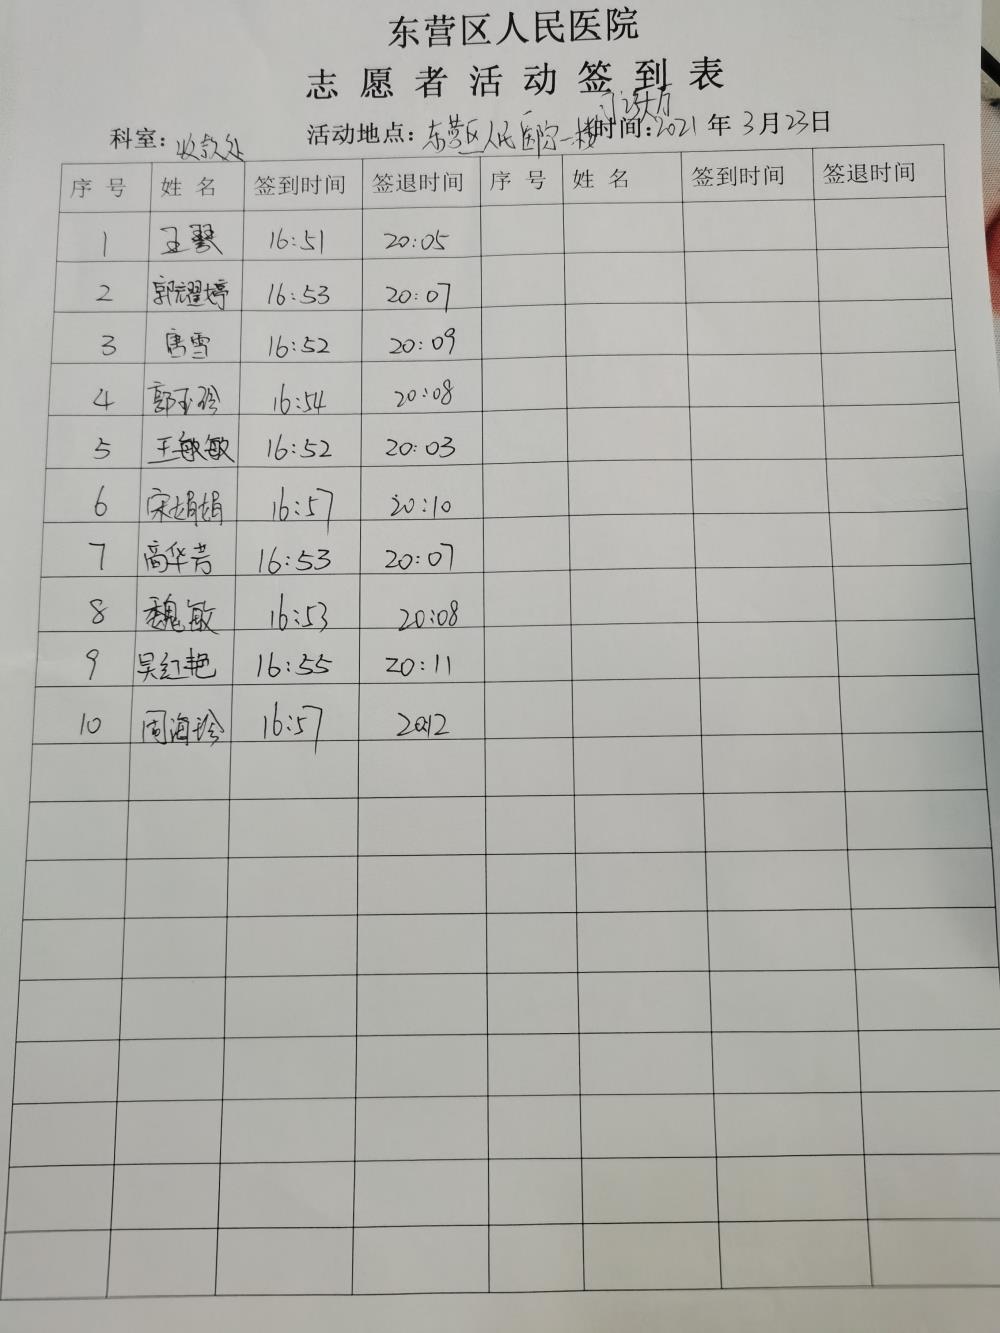 东营区人民医院
志愿者活动签到表
科室：收款处 活动地点：东营区人民医院一楼门诊大厅 时间：2021年3月23日
序号 姓名 签到时间 签退时间 序号 姓名 签到时间 签退时间
1 王琴 16:51 20:05
2 郭耀婷 16:53 20:07
3 唐雪 16:52 20:09
4 郭玉玲 16:54 20:08
5 王敏敏 16:52 20:03
6 宋娟娟 16:57 20:10
7 高华芳 16:53 20:07
8 魏敏 16:53 20:08
9 吴红艳 16:55 20:11
10 周海珍 16:57 20:12